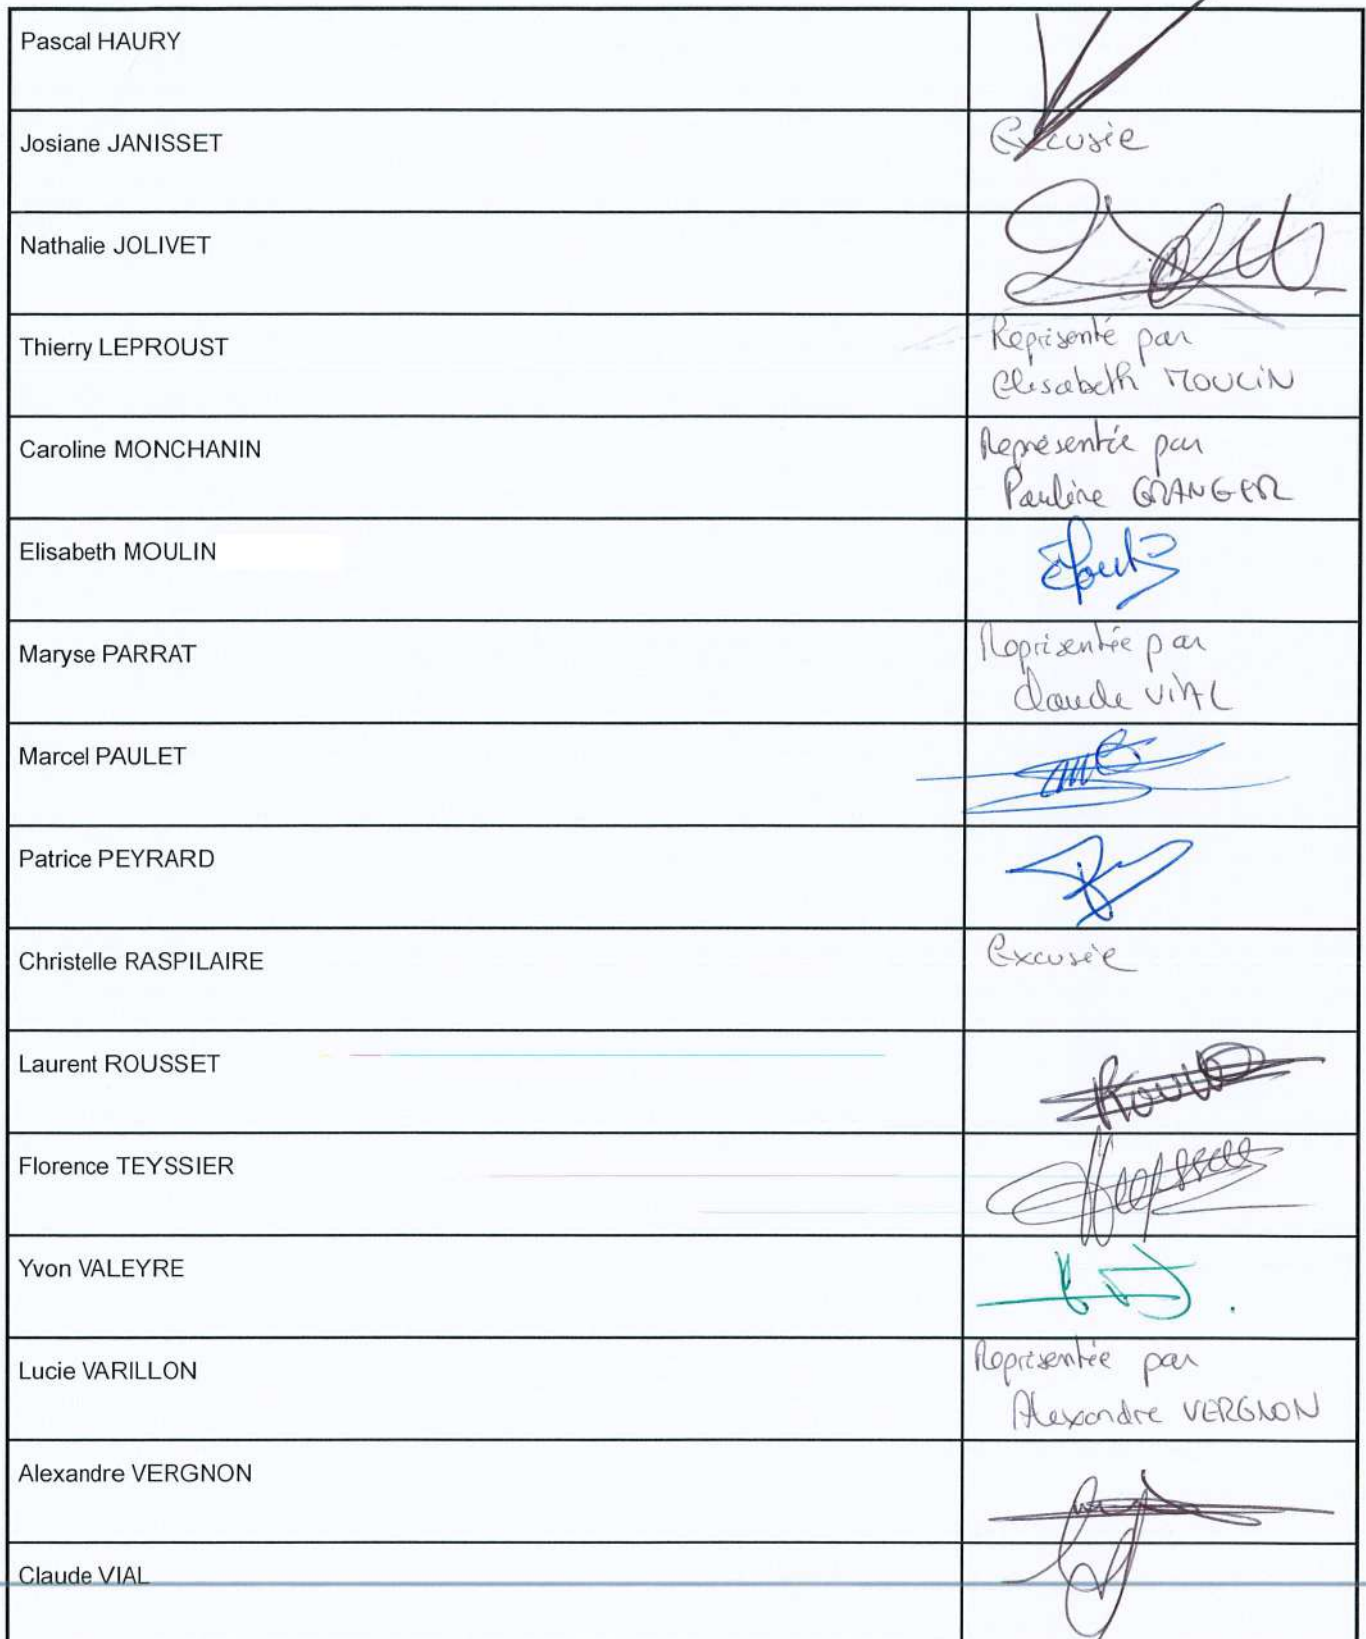 Pascal HAURY
Josiane JANISSET
Excusée
Nathalie JOLIVET
Thierry LEPROUST
Représenté par
Elisabeth MOULIN
Caroline MONCHANIN
Représentée par
Pauline GRANGER
Elisabeth MOULIN
Maryse PARRAT
Représentée par
Claude VIAL
Marcel PAULET
Patrice PEYRARD
Christelle RASPILAIRE
Excusée
Laurent ROUSSET
Florence TEYSSIER
Yvon VALEYRE
Lucie VARILLON
Représentée par
Alexandre VERGNON
Alexandre VERGNON
Claude VIAL